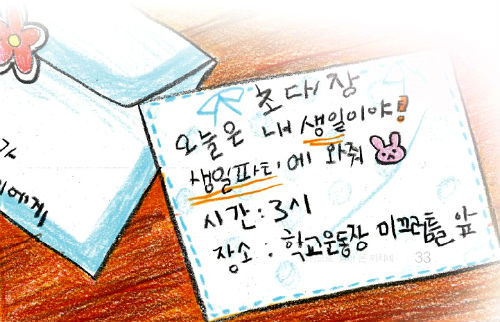 가
이에게
초대장
오늘은 내 생일이야!
생일파티에 와줘
시간 : 3시
장소 : 학교운동장 미끄러틀 앞
33